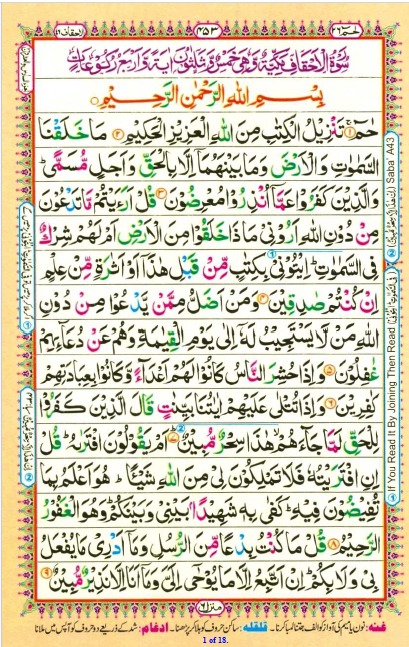 الاحقاف ٤٦
٤٥٣
حٰمٓ ٢٦
سُوْرَةُ الْاَحْقَافِ مَكِّيَّةٌ وَّهِيَ خَمْسٌ وَّثَلٰثُوْنَ اٰيَةً وَّاَرْبَعُ رُكُوْعَاتٍ
بِسْمِ اللهِ الرَّحْمٰنِ الرَّحِيْمِ
حٰمٓ ۚ﴿۱﴾ تَنْزِيْلُ الْكِتٰبِ مِنَ اللهِ الْعَزِيْزِ الْحَكِيْمِ ﴿۲﴾ مَا خَلَقْنَا
السَّمٰوٰتِ وَالْاَرْضَ وَمَا بَيْنَهُمَاۤ اِلَّا بِالْحَقِّ وَاَجَلٍ مُّسَمًّى ؕ
وَالَّذِيْنَ كَفَرُوْا عَمَّاۤ اُنْذِرُوْا مُعْرِضُوْنَ ﴿۳﴾ قُلْ اَرَءَيْتُمْ مَّا تَدْعُوْنَ
مِنْ دُوْنِ اللهِ اَرُوْنِيْ مَاذَا خَلَقُوْا مِنَ الْاَرْضِ اَمْ لَهُمْ شِرْكٌ
فِي السَّمٰوٰتِ ؕ اِيْتُوْنِيْ بِكِتٰبٍ مِّنْ قَبْلِ هٰذَاۤ اَوْ اَثٰرَةٍ مِّنْ عِلْمٍ
اِنْ كُنْتُمْ صٰدِقِيْنَ ﴿۴﴾ وَمَنْ اَضَلُّ مِمَّنْ يَّدْعُوْا مِنْ دُوْنِ
اللهِ مَنْ لَّا يَسْتَجِيْبُ لَهٗۤ اِلٰى يَوْمِ الْقِيٰمَةِ وَهُمْ عَنْ دُعَآئِهِمْ
غٰفِلُوْنَ ﴿۵﴾ وَاِذَا حُشِرَ النَّاسُ كَانُوْا لَهُمْ اَعْدَآءً وَّكَانُوْا بِعِبَادَتِهِمْ
كٰفِرِيْنَ ﴿۶﴾ وَاِذَا تُتْلٰى عَلَيْهِمْ اٰيٰتُنَا بَيِّنٰتٍ قَالَ الَّذِيْنَ كَفَرُوْا
لِلْحَقِّ لَمَّا جَآءَهُمْ هٰذَا سِحْرٌ مُّبِيْنٌ ﴿۷﴾ اَمْ يَقُوْلُوْنَ افْتَرٰىهُ ؕ قُلْ
اِنِ افْتَرَيْتُهٗ فَلَا تَمْلِكُوْنَ لِيْ مِنَ اللهِ شَيْئًا ؕ هُوَ اَعْلَمُ بِمَا
تُفِيْضُوْنَ فِيْهِ ؕ كَفٰى بِهٖ شَهِيْدًۢا بَيْنِيْ وَبَيْنَكُمْ ؕ وَهُوَ الْغَفُوْرُ
الرَّحِيْمُ ﴿۸﴾ قُلْ مَا كُنْتُ بِدْعًا مِّنَ الرُّسُلِ وَمَاۤ اَدْرِيْ مَا يُفْعَلُ
بِيْ وَلَا بِكُمْ ؕ اِنْ اَتَّبِعُ اِلَّا مَا يُوْحٰۤى اِلَيَّ وَمَاۤ اَنَا اِلَّا نَذِيْرٌ مُّبِيْنٌ ﴿۹﴾
Saba' A43
If You Read It By Joining Then Read
منزل ٦
غنه: نون یا میم کی آواز کو الف جتنا لمبا کرنا۔ قلقله: ساکن حروف کو ہلا کر پڑھنا۔ ادغام: شد کے ذریعے دو حروف کو آپس میں ملانا
1 of 18.